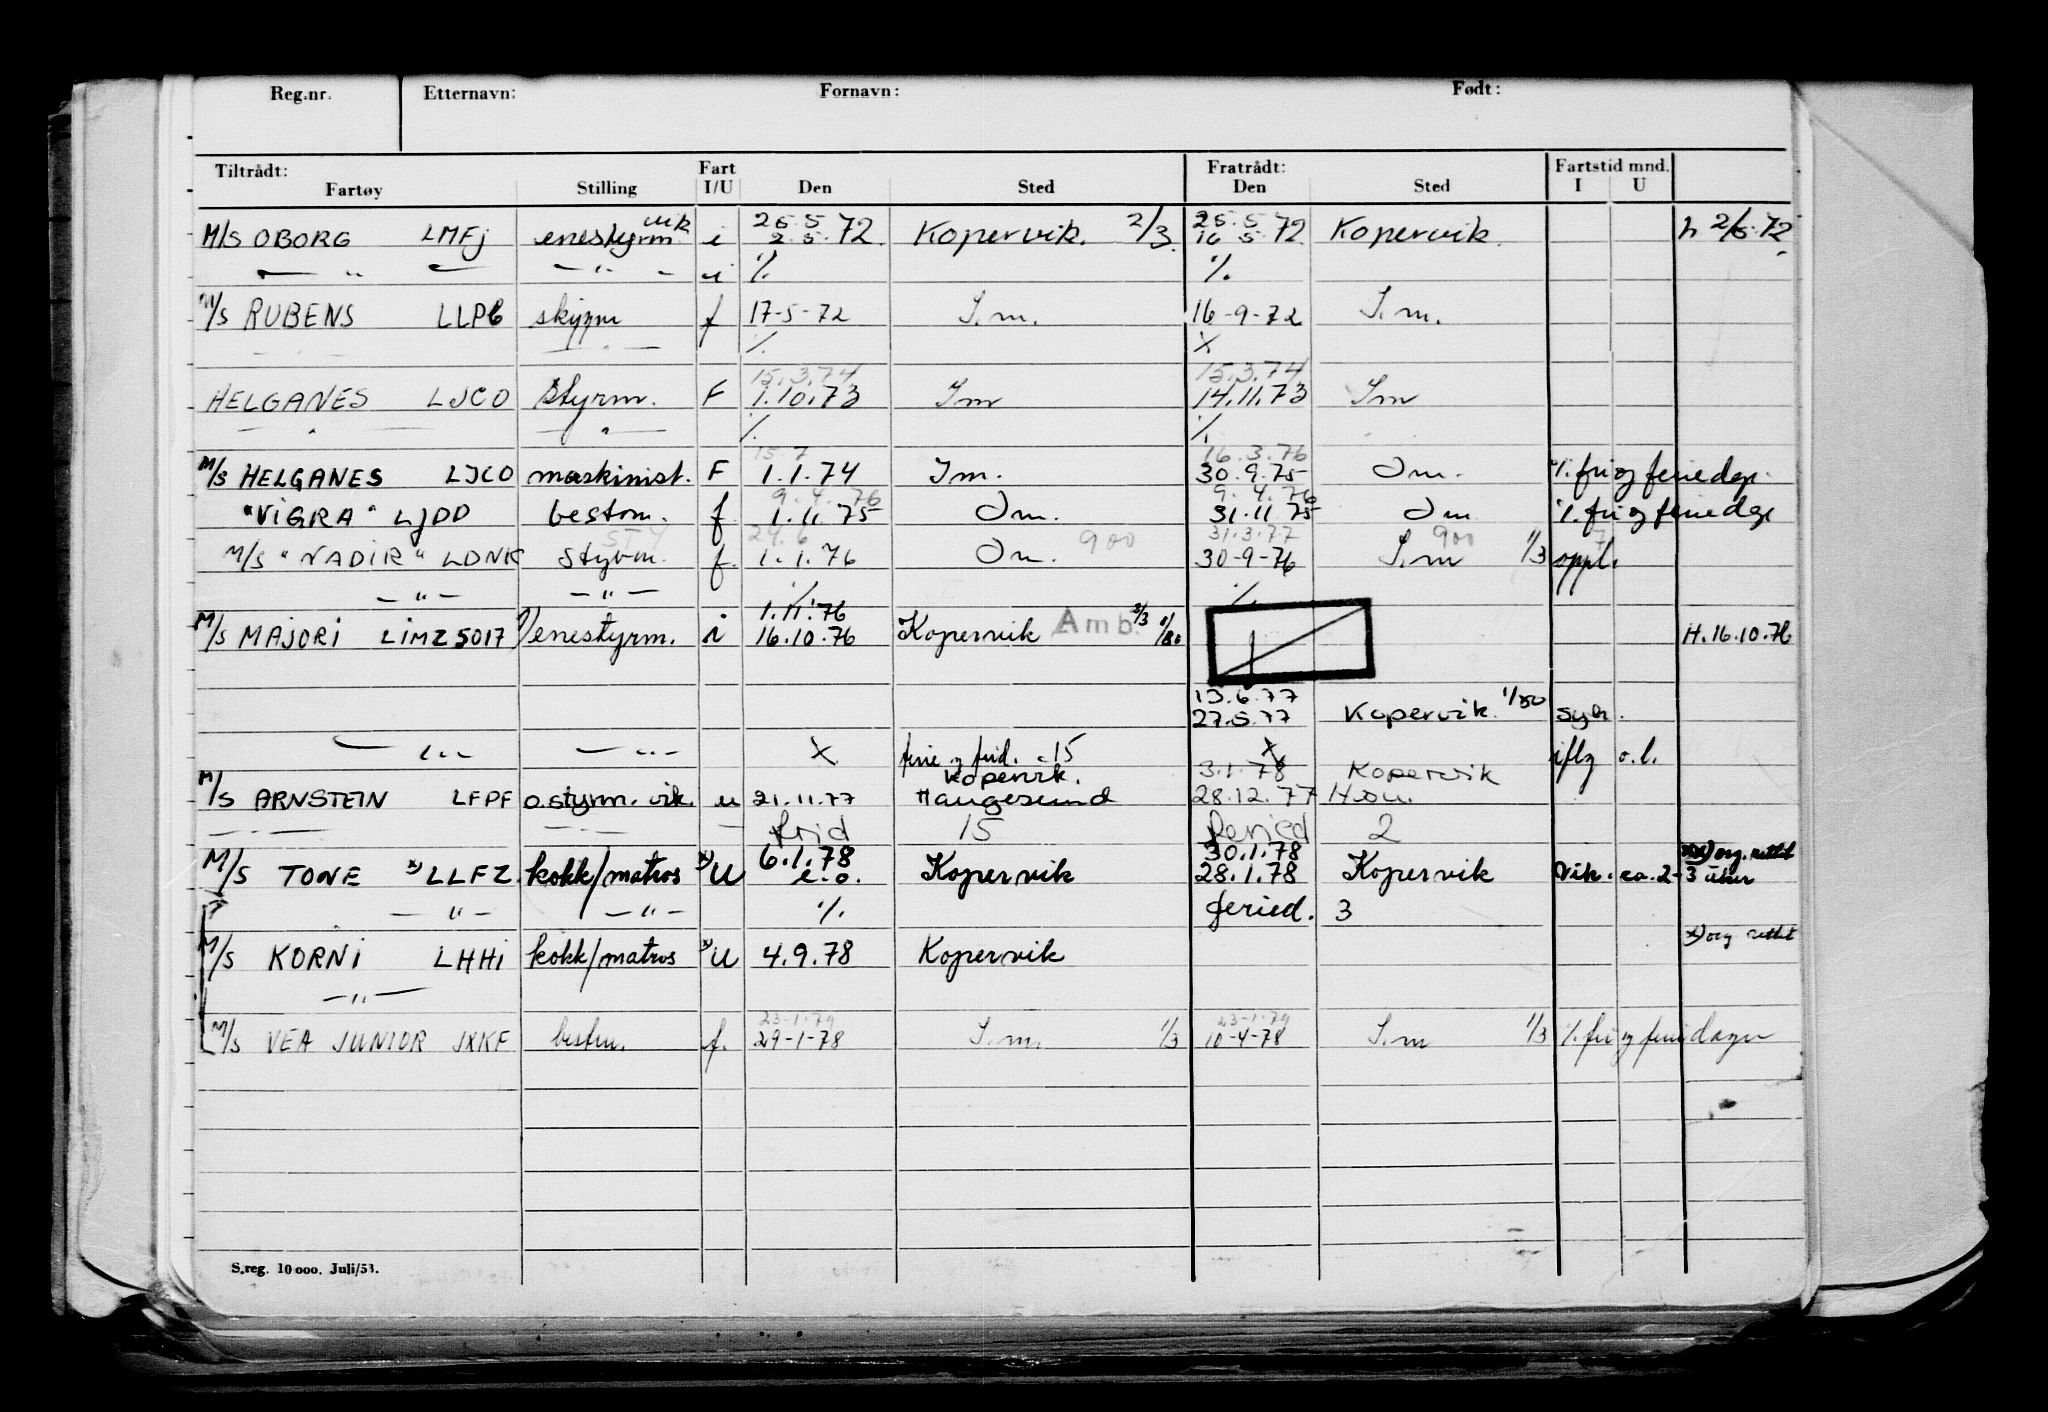 Reg.nr. Etternavn: Fornavn: Født:
Tiltrådt: Fart Fratrådt: Fartstid mnd.
Fartøy Stilling I/U Den Sted Den Sted I U
vik 25.5 25.5
M/S OBORG LMFj enestyrm i 2.5.72 Kopervik. 2/3 16 5.72 Kopervik h 2/5.72
— " — — " — i % %.
M/S RUBENS LLPC skyppr f 17-5-72 S.m. 16-9-72 S.m.
— " — — " — % X
15.3.74 15.3.74
HELGANES LJCO Styrm. F 1.10.73 Sm 14.11.73 Sm
— " — — " — % %
15 7 16.3.76
M/S HELGANES LJCO maskinist. F 1.1.74 Sm. 30.9.75 Sm. %. fri og feriedgr.
9.4.76 9.4.76
"VIGRA" LJDD bestm. f 1.11.75 Sm. 31.11.75 Sm %. fri og feriedgr
STY 24.6 31.3.77
M/S "NADIR" LDNK styrm. f. 1.1.76 Sm. 900 30-9-76 S.m 900 1/3 oppl.
— " — — " — % %
1.11.76
M/S MAJORI LIMZ 5017 enestyrm. i 16.10.76 Kopervik Amb. 3/3 1/80 H.16.10.76
13.6.77
27.5.77 Kopervik. 1/80 syk.
— " — — " — X ferie og frid. 15 X iflg o.l.
Kopervik. 3.1.78 Kopervik
M/S ARNSTEIN LFPF o.styrm. vik. u 21.11.77 Haugesund 28.12.77 H.su.
— " — — " — — frid 15 feried 2
6.1.78 30.1.78 xx) org. rettet
M/S TONE x) LLFZ kokk/matros x) U e.o. Kopervik 28.1.78 Kopervik Vik. ca. 2-3 uker
— " — — " — % feried. 3
x) org rettet
M/S KORNI LHHi kokk/matros x) U 4.9.78 Kopervik
— " —
23-1-79 23-1-79
M/S VEA JUNIOR JXKF bestm. f. 29-1-78 S.m. 1/3 10-4-78 S.m 1/3 %. fri og feriedager
S.reg. 10 000. Juli/53.